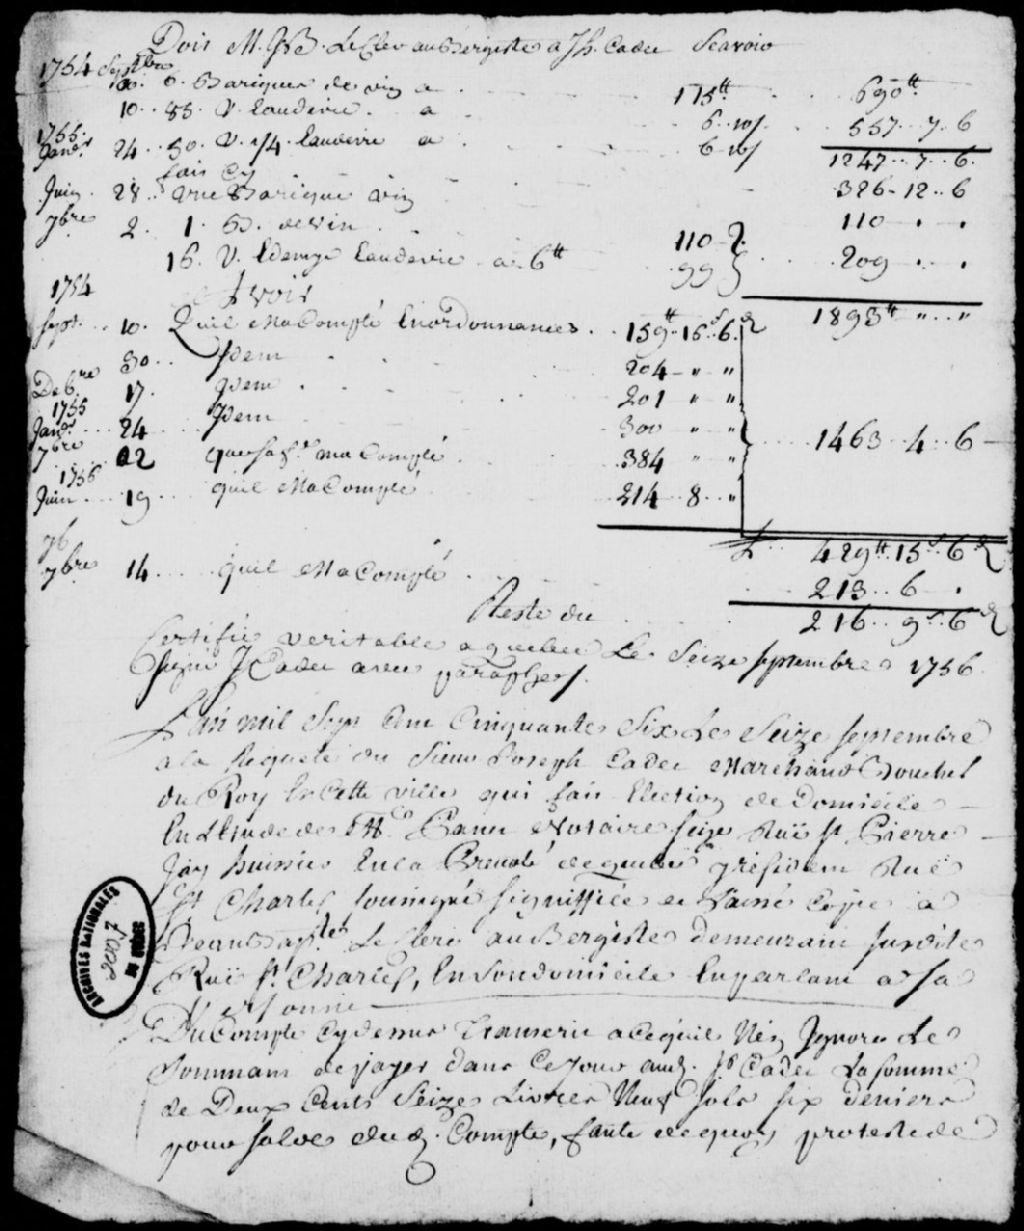 Dois M. JB. LeClerc auBergiste a Jh. Cadet Scavoir
1754 Septbre
10. 6. Bariques de vin a 115tt 690tt
10. 85. V. Eaudevie. a 6..10s 557..7..6
1755.
Janvr 24.. 50. V. 1/4. Eaudevie a 6 10s 1247..7..6.
fait cy 326-12..6
Juin. 28.. une Barique vin 110
7bre 2. 1. B. de vin 110
16. V. Eaudevie a 6tt 99 209
1893tt " "
1754 Avoir
Sept. 10. Quil MaCompté Enordonnances.. 159tt..16s..6d
30.. Idem 204 - " "
Debre 17. Idem 201 " "
1755
Janvr 24 Idem 300 " "
7bre 22 ma Compté 384 " "
1463..4..6
1756
Juin 19 quil MaCompté 214..8.."
429tt..15s..6d
76
7bre 14.... quil MaCompté 213..6..
Reste du 216..9s..6d
Certifié veritable a quebec Le Seize septembre 1756.
Signé J Cadet avec paraphes/.
L'an mil Sept Cent Cinquante Six Le Seize septembre
a la Requete du Sieur Joseph Cadet Marchand Bouché
du Roy En cette ville qui fait Election de Domicile
En L'Etude de Me Panet Notaire seize Rüe St. Pierre
Jay huissier En la Prevosté de quebec residant Rüe
St Charles soussigné signiffiée et Laissé Copie a
Jean Bapte. LeClerc auBergiste demeurant susdite
Rüe St. Charles, En Sondomicile Enparlant a Sa
Personne
Du Compte Cydessus Transcrit a cequil Nen Ignore Le
Sommant de payer dans Ce jour aud. Sr Cadet La somme
de Deux Cents Seize Livres Neuf sols six deniers
pour solde dud. Compte, faute dequoy proteste de
ARCHIVES NATIONALES